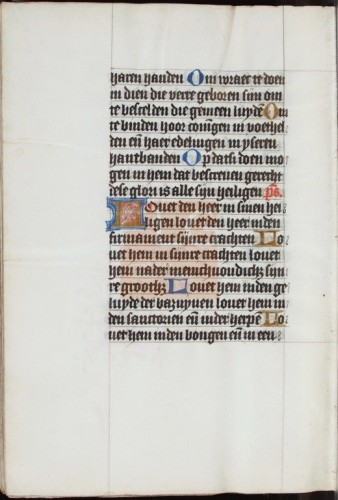 haren handen Om wrake te doen
in dien die verre geboren sijn om
te bescelden die gemeen luydē Om
te binden hoor coningen in voethel
den eñ haer edelingen in yseren
hantbanden Op datsi doen mo
gen in hem dat bescreven gerecht
dese glori is alle sijn heiligen ps.
Louet den heer in sinen hei
ligen louet den heer inden
firmament sijnre crachten Lo
uet hem in sijnre crachten louet
hem na der menichuoudich sijn
re groot Louet hem inden ge
luyde der bazuynen louet hem in
den sanctorien eñ in der herpē Lo
uet hem inden bongen eñ in een